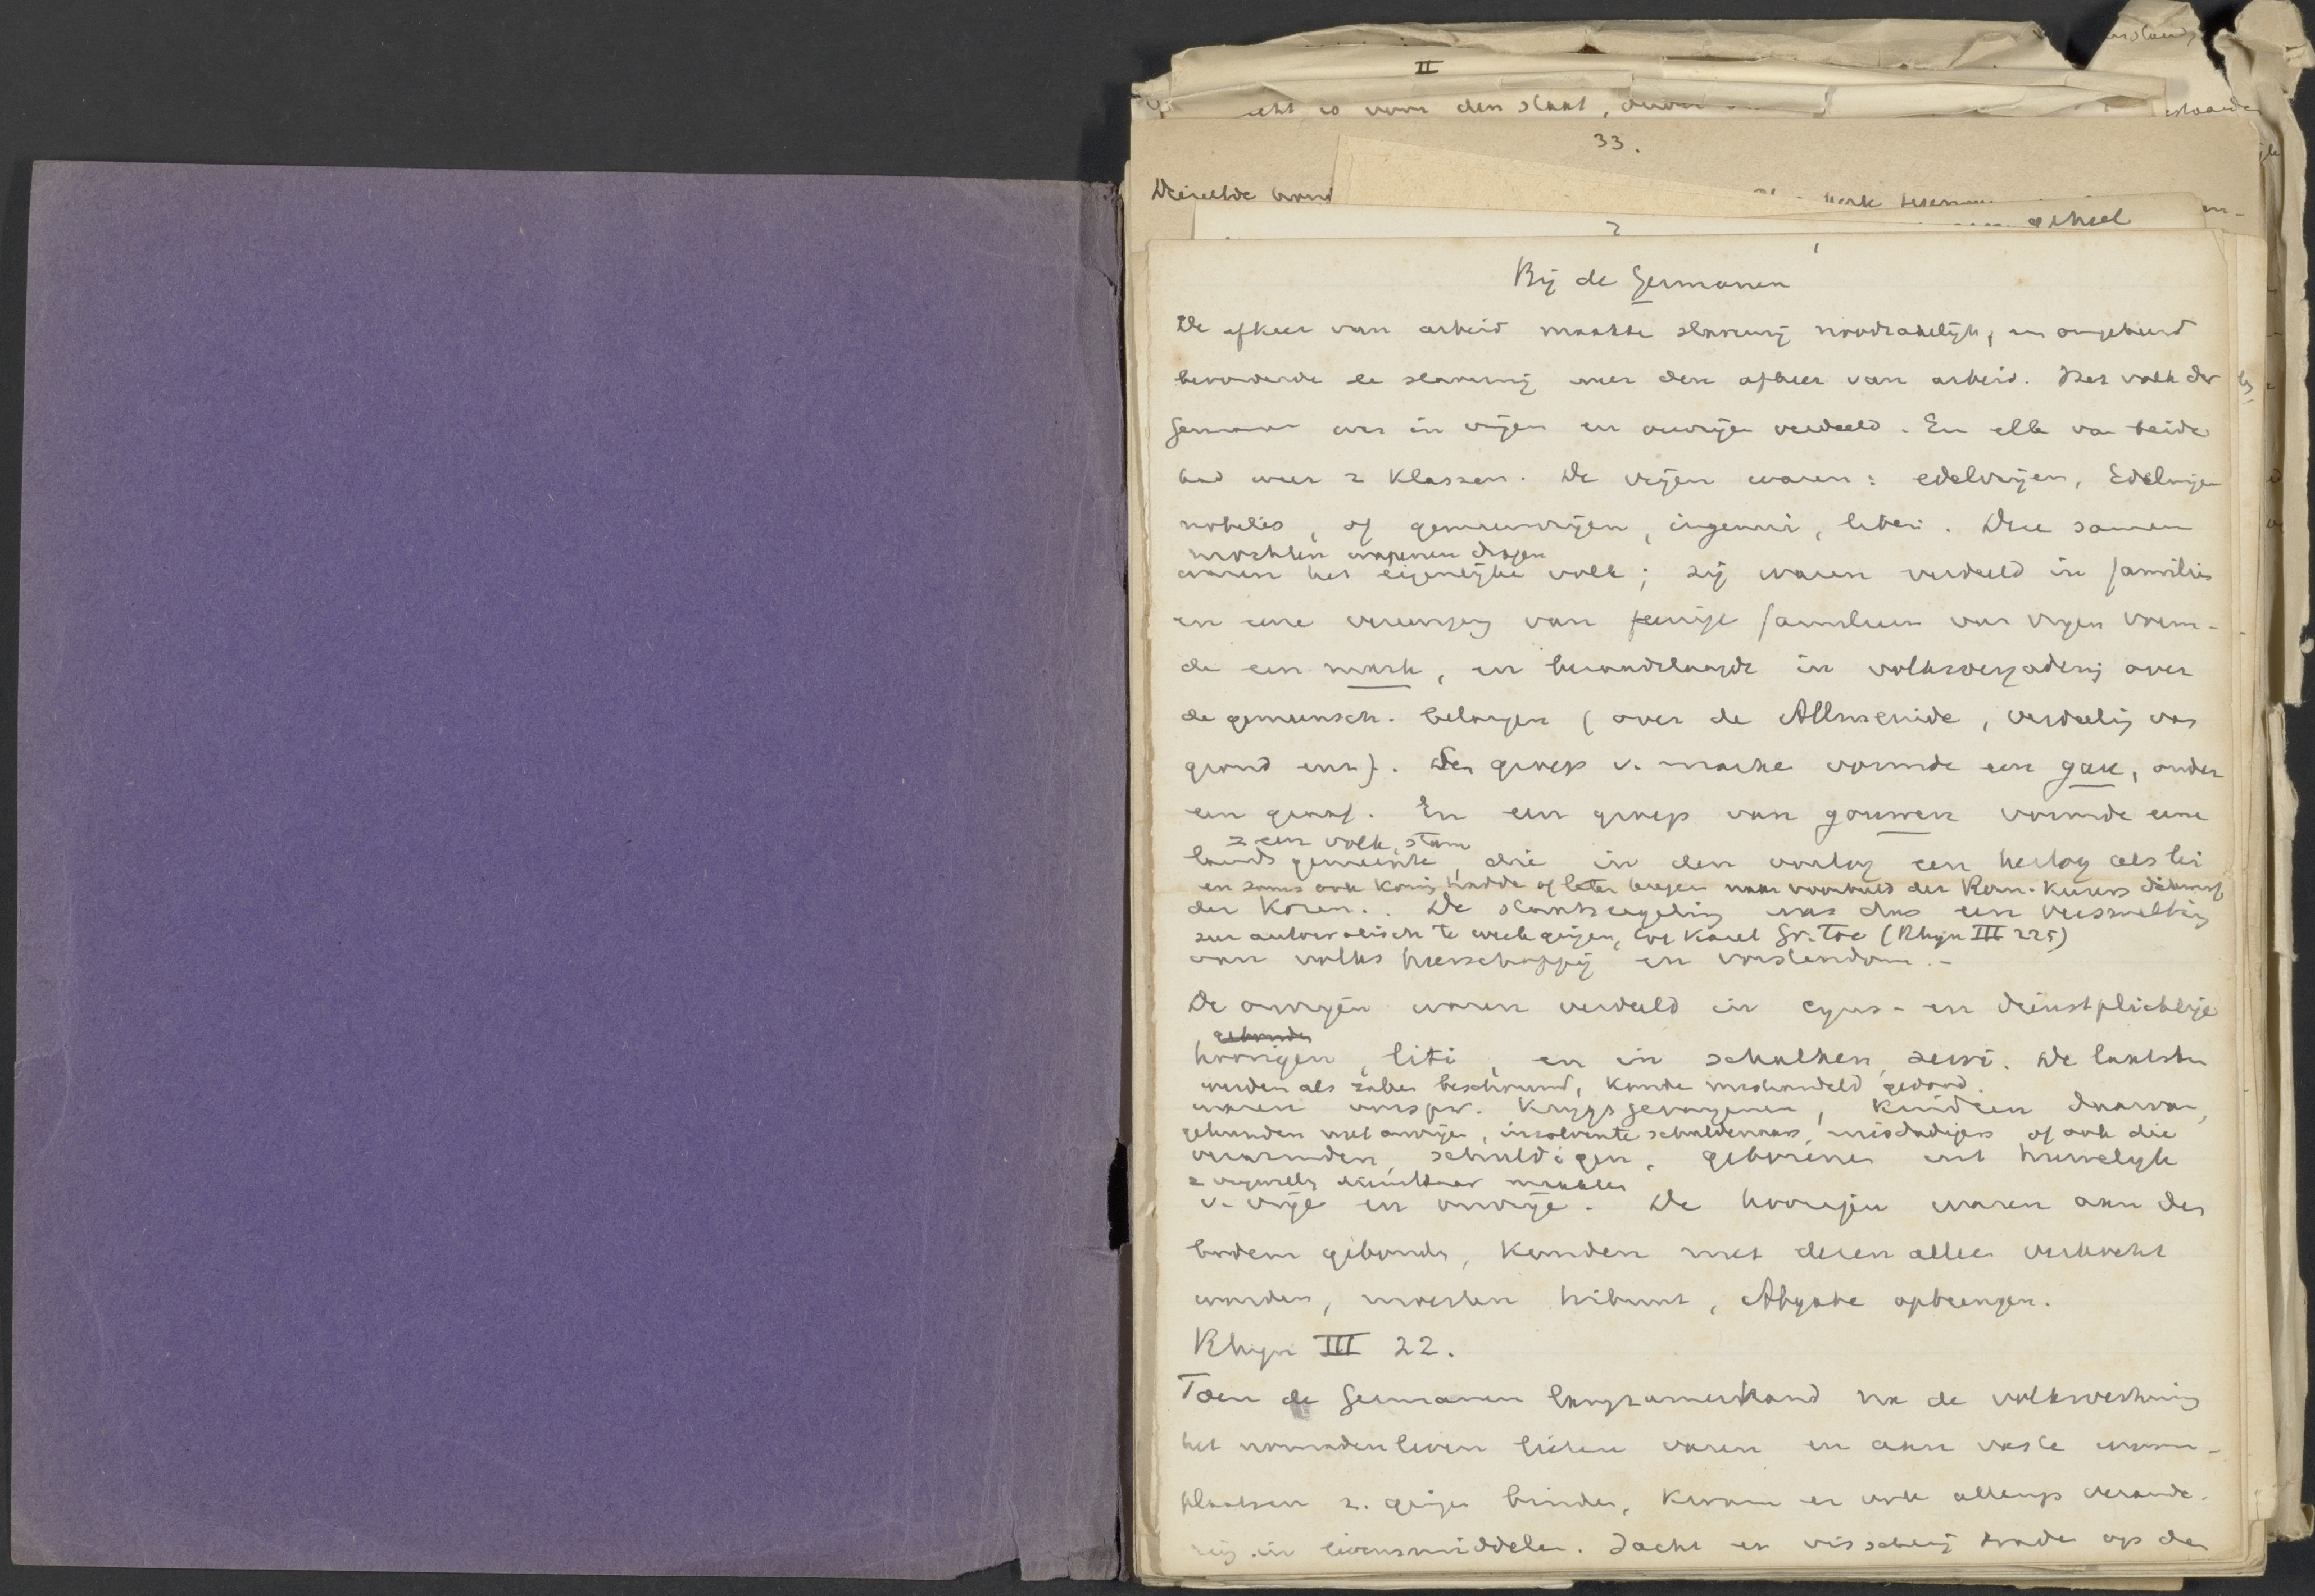 II
is voor den staat,
33.
Dezelfde
geheel
2
1
Bij de Germanen
De afkeer van arbeid maakte slavernij noodzakelijk, en omgekeerd
bevorderde de slavernij weer den afkeer van arbeid. Het volk der
Germanen was in vrijen en onvrijen verdeeld. En elk van beide
had weer 2 klassen. De vrijen waren: edelvrijen, Edelingen
nobiles, of gemeenvrijen, ingenui, liberi. Deze samen
mochten wapenen dragen
waren het eigenlijke volk; zij waren verdeeld in families
en eene vereeniging van eenige familien van vrijen vorm-
de een mark, en beraadslaagde in volksvergadering over
de gemeensch. belangen (over de Allmeinde, verdeeling van
grond enz.). Een groep v. marke vormde een gau, onder
een graaf. En een groep van gouwen vormde eene
= een volk, stam
lands gemeente, die in den oorlog een hertog als lei
en soms ook koning hadde of later naar voorbeeld der Rom. keizers
der kozen. De staatsregeling was dus een versmelting
zeer autocratisch te werk gingen, tot Karel Gr. toe (Rhijn III 225)
van volks heerschappij en vorstendom. -
De onvrijen waren verdeeld in cyns- en dienstplichtige
gebonden
hoorigen, liti, en in schalken, servi. De laatsten
werden als zaken beschouwd, konden mishandeld, gedood.
waren oorspr. krijgsgevangenen, kinderen daarvan,
gehuwden met onvrijen, insolvente schuldenaars, misdadigers of ook die
verarmden, schuldigen, geborenen uit huwelijk
z. vrijwillig dienstbaar maakten
v. vrije en onvrije. De hoorigen waren aan den
bodem gebonden, konden met dezen alleen verkocht
worden, moesten tribuut, Abgabe opbrengen.
Rhijn III 22.
Toen de Germanen langzamerhand na de volksverhuizing
het nomadenleven lieten varen en aan vaste woon-
plaatsen z. gingen binden, kwam er ook allengs verande-
ring in levensmiddelen. Jacht en visscherij trade op den